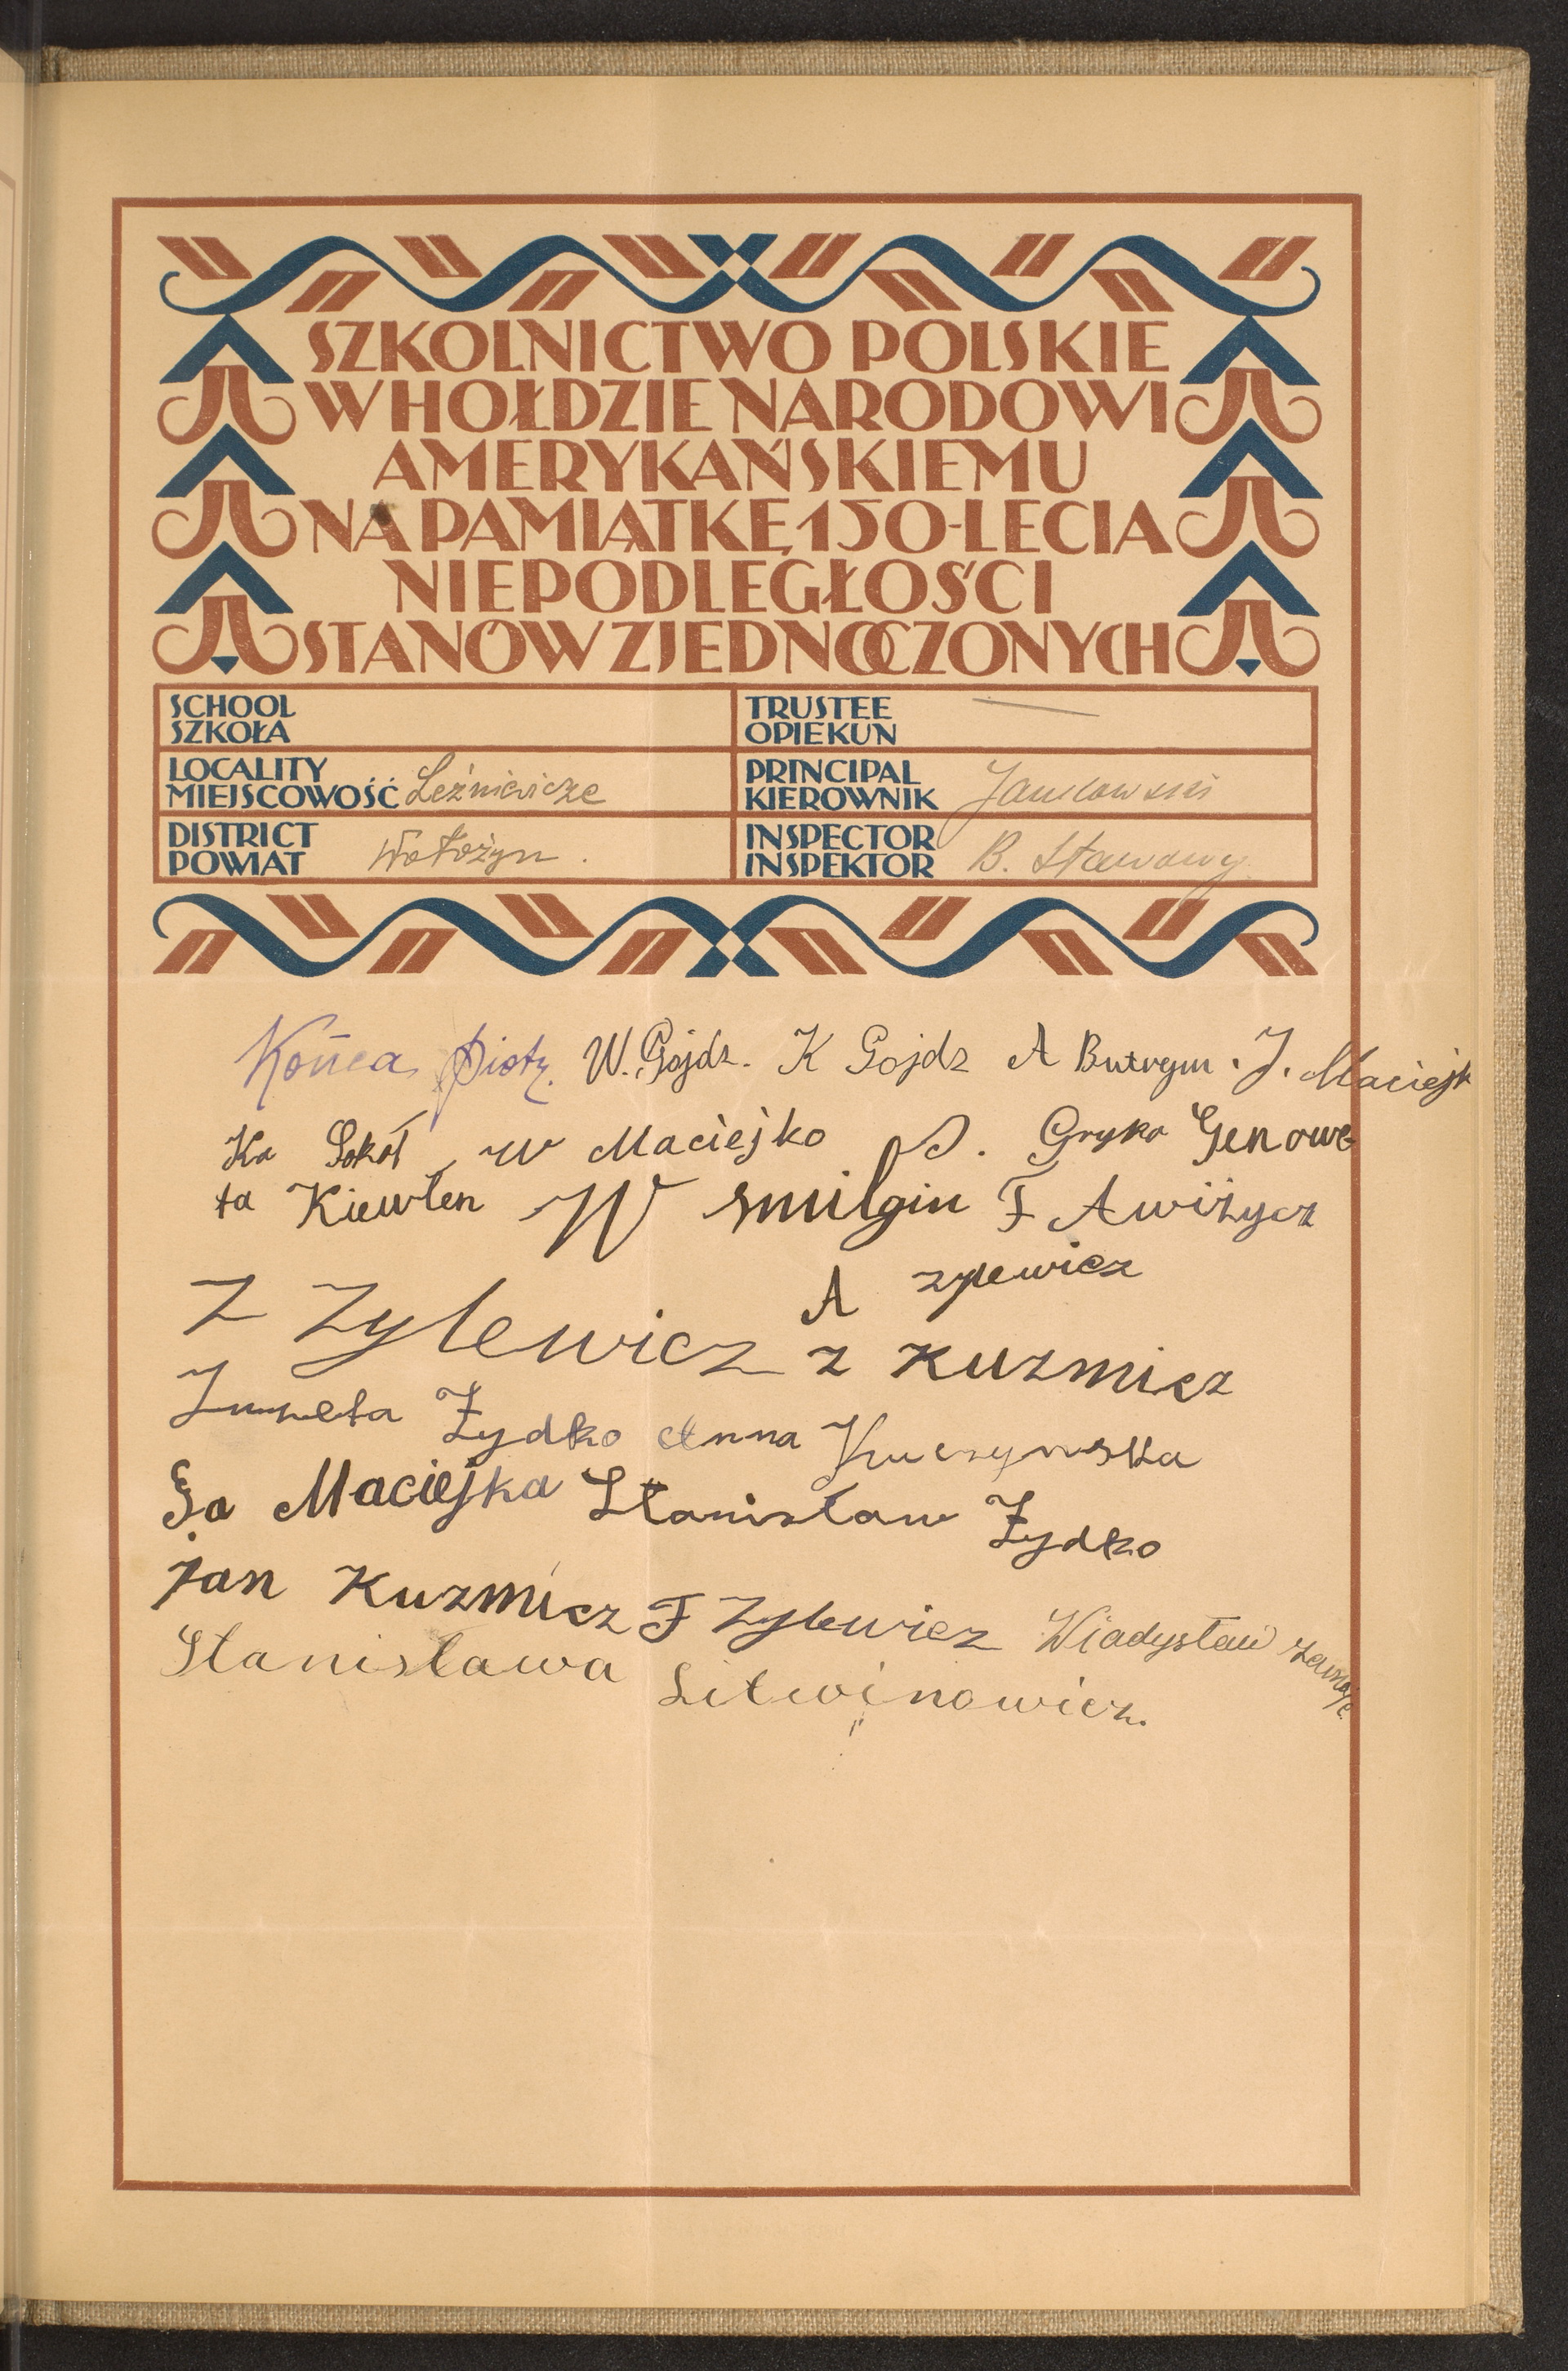 SZKOLNICTWO POLSKIE
W HOŁDZIE NARODOWI
AMERYKAŃSKIEMU
NA PAMIĄTKĘ 150-LECIA
NIEPODLEGŁOŚCI
STANÓW ZJEDNOCZONYCH
SCHOOL
SZKOŁA
TRUSTEE
OPIEKUN
LOCALITY
MIEJSCOWOŚĆ Leźniewicze
PRINCIPAL
KIEROWNIK
DISTRICT
POWIAT Wołożyn.
INSPECTOR
INSPEKTOR B. Stawowy
Końca Piotr. W. Gojdz. K Gojdz A Butrym. J. Maciejk
Ka Sokoł W Maciejko S. Gryko Genowe
fa Kiewlen W Smilgin F Awiżycz
A Zylewicz
Z Zylewicz Z Kuzmicz
Żydko Anna Kuczynska
Maciejka Stanisław Żydko
jan Kuzmicz F Zylewicz Władysław
Stanisława Litwinowicz.